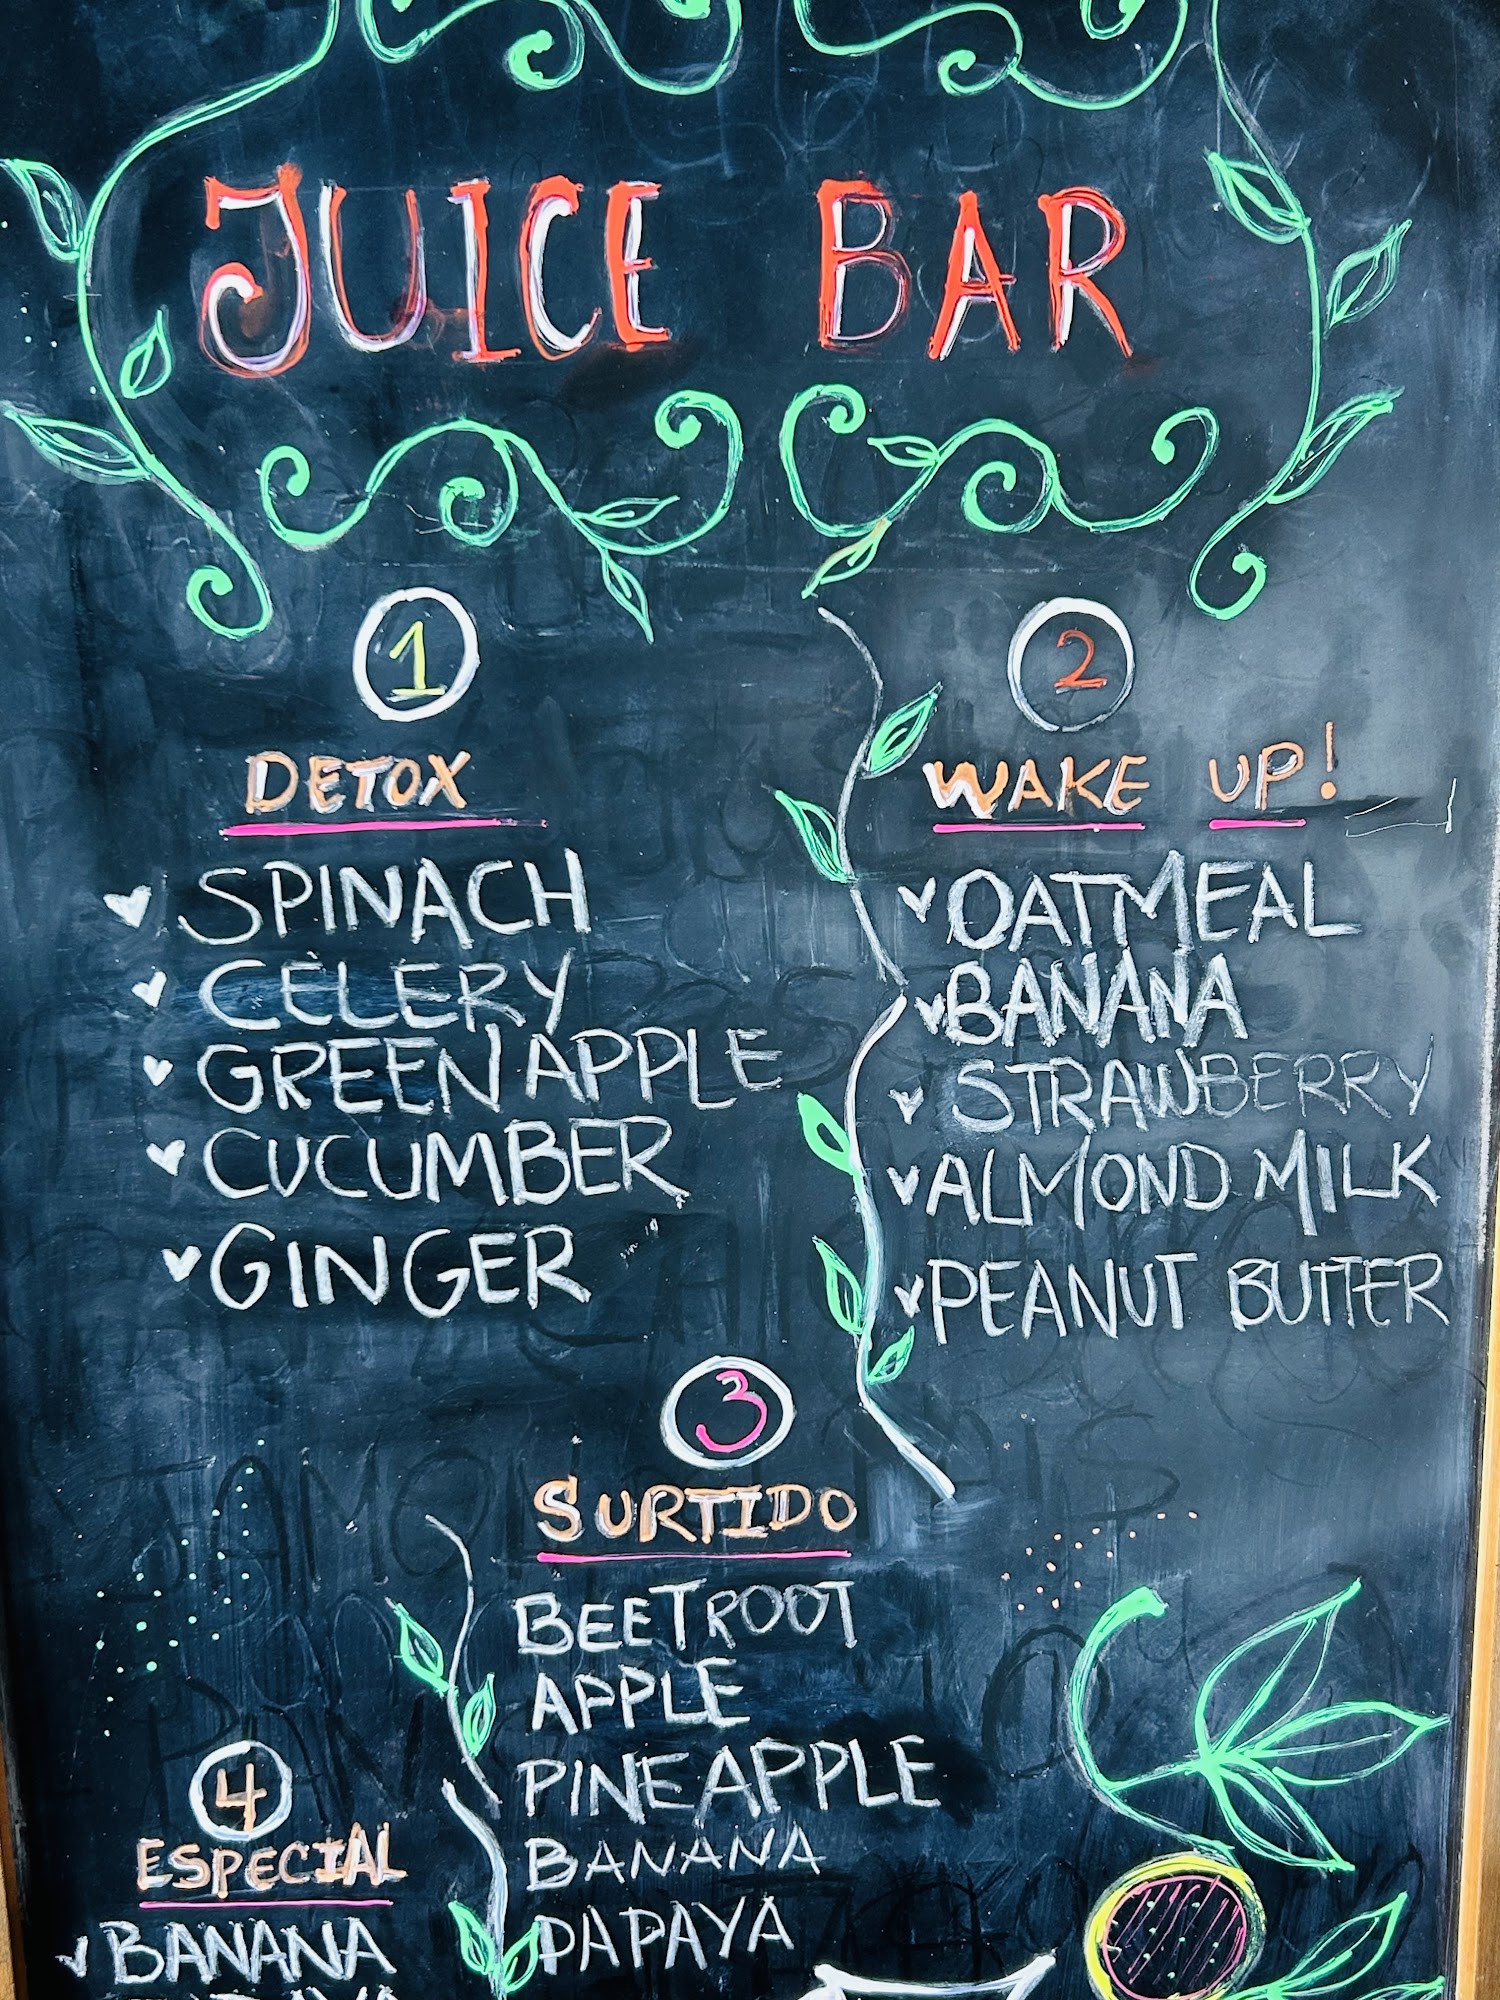 JUICE BAR
1
DETOX
SPINACH
CELERY
GREEN APPLE
CUCUMBER
GINGER
2
WAKE UP!
OATMEAL
BANANA
STRAWBERRY
ALMOND MILK
PEANUT BUTTER
3
SURTIDO
BEETROOT
APPLE
PINEAPPLE
BANANA
PAPAYA
4
ESPECIAL
BANANA